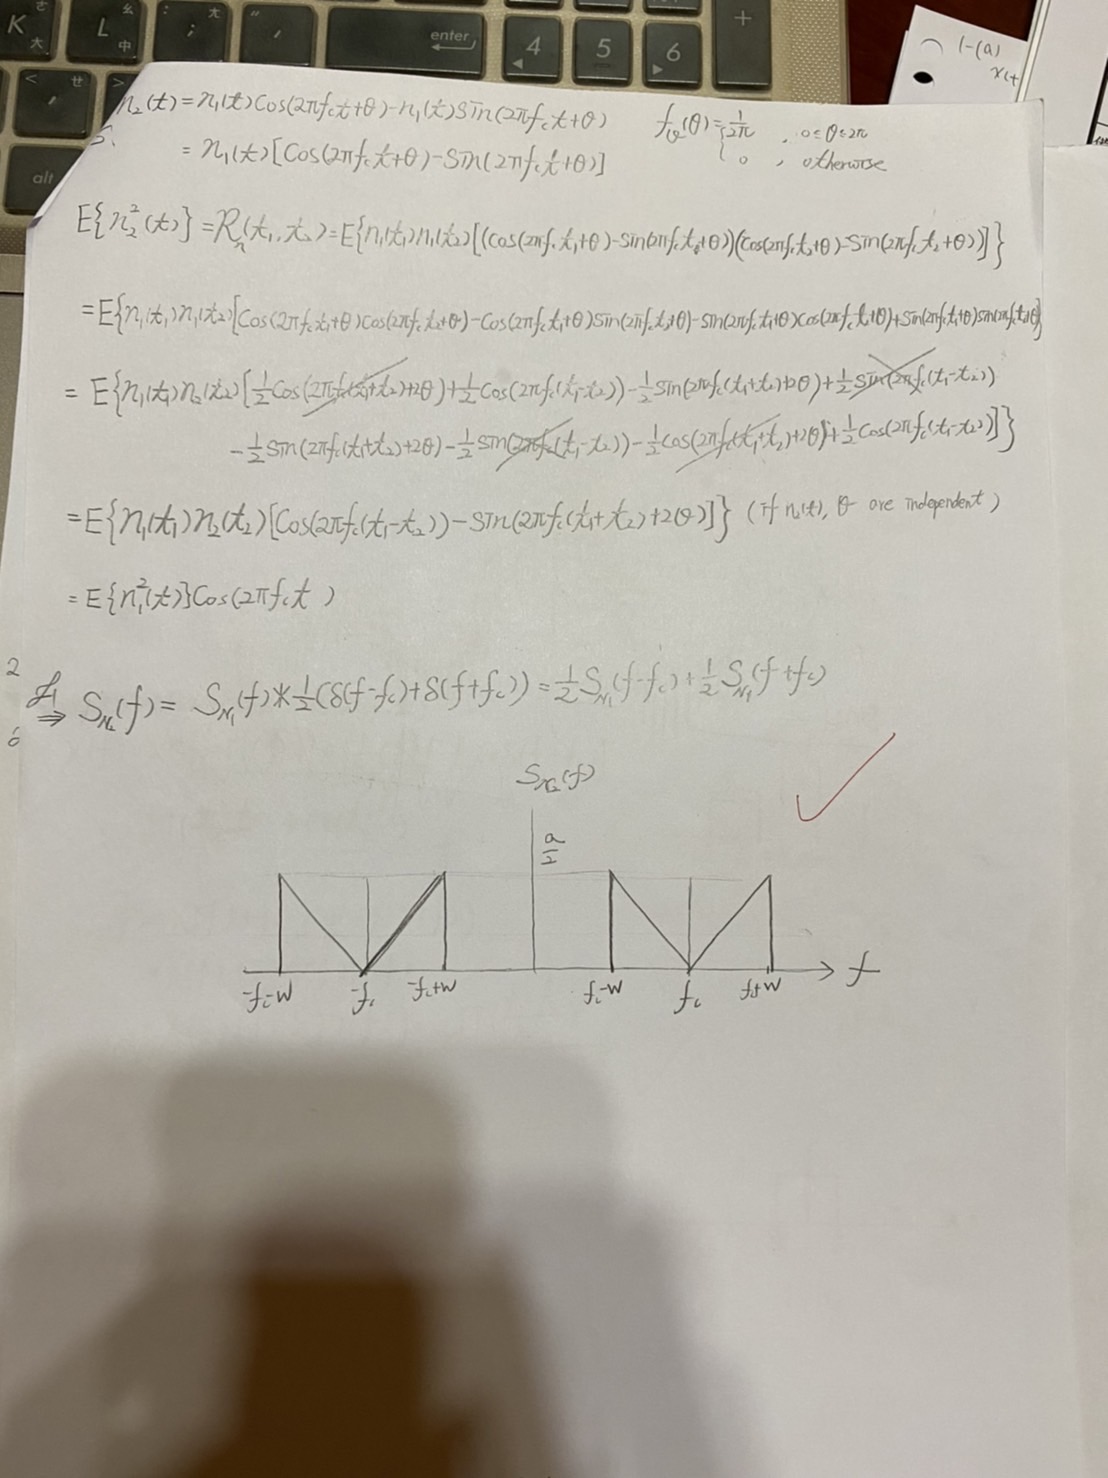 K ㄜ 大
L ㄠ 中
; ㄤ
enter
4
5
6
+
alt
1-(a)
x(t
n₂(t)=n₁(t)Cos(2πf_ct+θ)-n₁(t)Sin(2πf_ct+θ)
f_θ(θ)={1/2π , 0≤θ≤2π
0 , otherwise
5.
=n₁(t)[Cos(2πf_ct+θ)-Sin(2πf_ct+θ)]
E{n₂²(t)}=R_n(t₁,t₂)=E{n₁(t₁)n₁(t₂)[(Cos(2πf_ct₁+θ)-Sin(2πf_ct₁+θ))(Cos(2πf_ct₂+θ)-Sin(2πf_ct₂+θ))]}
=E{n₁(t₁)n₁(t₂)[Cos(2πf_ct₁+θ)Cos(2πf_ct₂+θ)-Cos(2πf_ct₁+θ)Sin(2πf_ct₂+θ)-Sin(2πf_ct₁+θ)Cos(2πf_ct₂+θ)+Sin(2πf_ct₁+θ)Sin(2πf_ct₂+θ)]}
=E{n₁(t₁)n₂(t₂)[1/2Cos(2πf_c(t₁+t₂)+2θ)+1/2Cos(2πf_c(t₁-t₂))-1/2Sin(2πf_c(t₁+t₂)+2θ)+1/2Sin(2πf_c(t₁-t₂))
-1/2Sin(2πf_c(t₁+t₂)+2θ)-1/2Sin(2πf_c(t₁-t₂))-1/2Cos(2πf_c(t₁+t₂)+2θ)+1/2Cos(2πf_c(t₁-t₂))]}
=E{n₁(t₁)n₂(t₂)[Cos(2πf_c(t₁-t₂))-Sin(2πf_c(t₁+t₂)+2θ)]} (if n₁(t), θ are independent)
=E{n₁²(t)}Cos(2πf_ct )
2
⇒ S_N₂(f)= S_N₁(f)*1/2(δ(f-f_c)+δ(f+f_c))=1/2S_N₁(f-f_c)+1/2S_N₁(f+f_c)
S_N₂(f)
a/2
-f_c-W
-f_c
-f_c+W
f_c-W
f_c
f_c+W
f